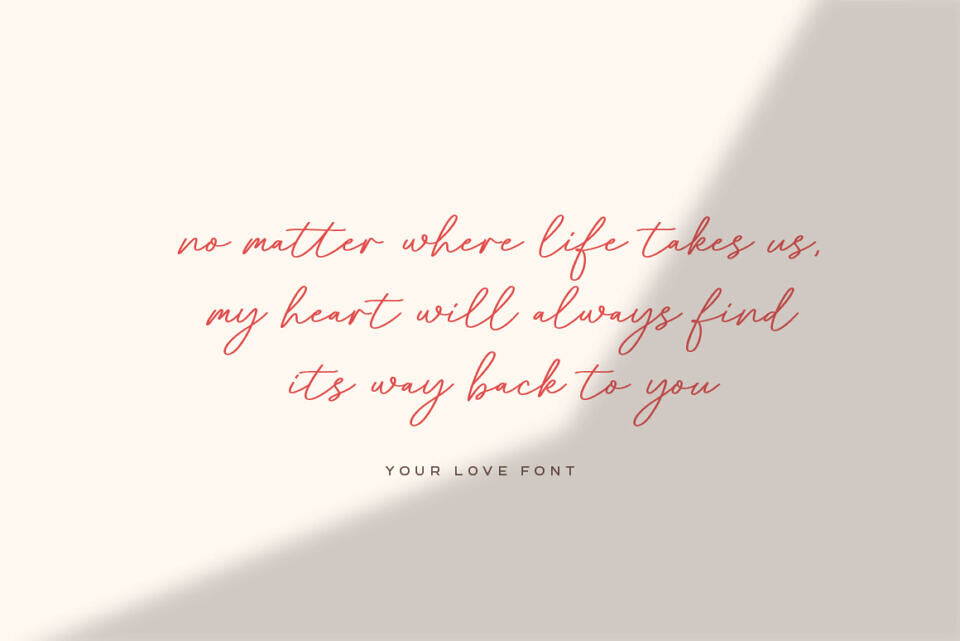 no matter where life takes us,
my heart will always find
its way back to you
YOUR LOVE FONT